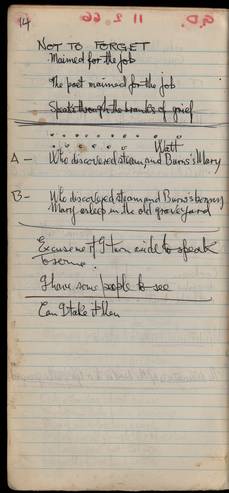 14
G.D. 11 2 66
NOT TO FORGET
Maimed for the job
The poet maimed for the job
Speaks through the branches of grief
Watt
A - Who discovered steam, and Burns's Mary
B - Who discovered steam and Burns's bonny
Mary asleep in the old graveyard
Excuse me if I turn aside to speak
To some
I have some people to see
Can I take it then